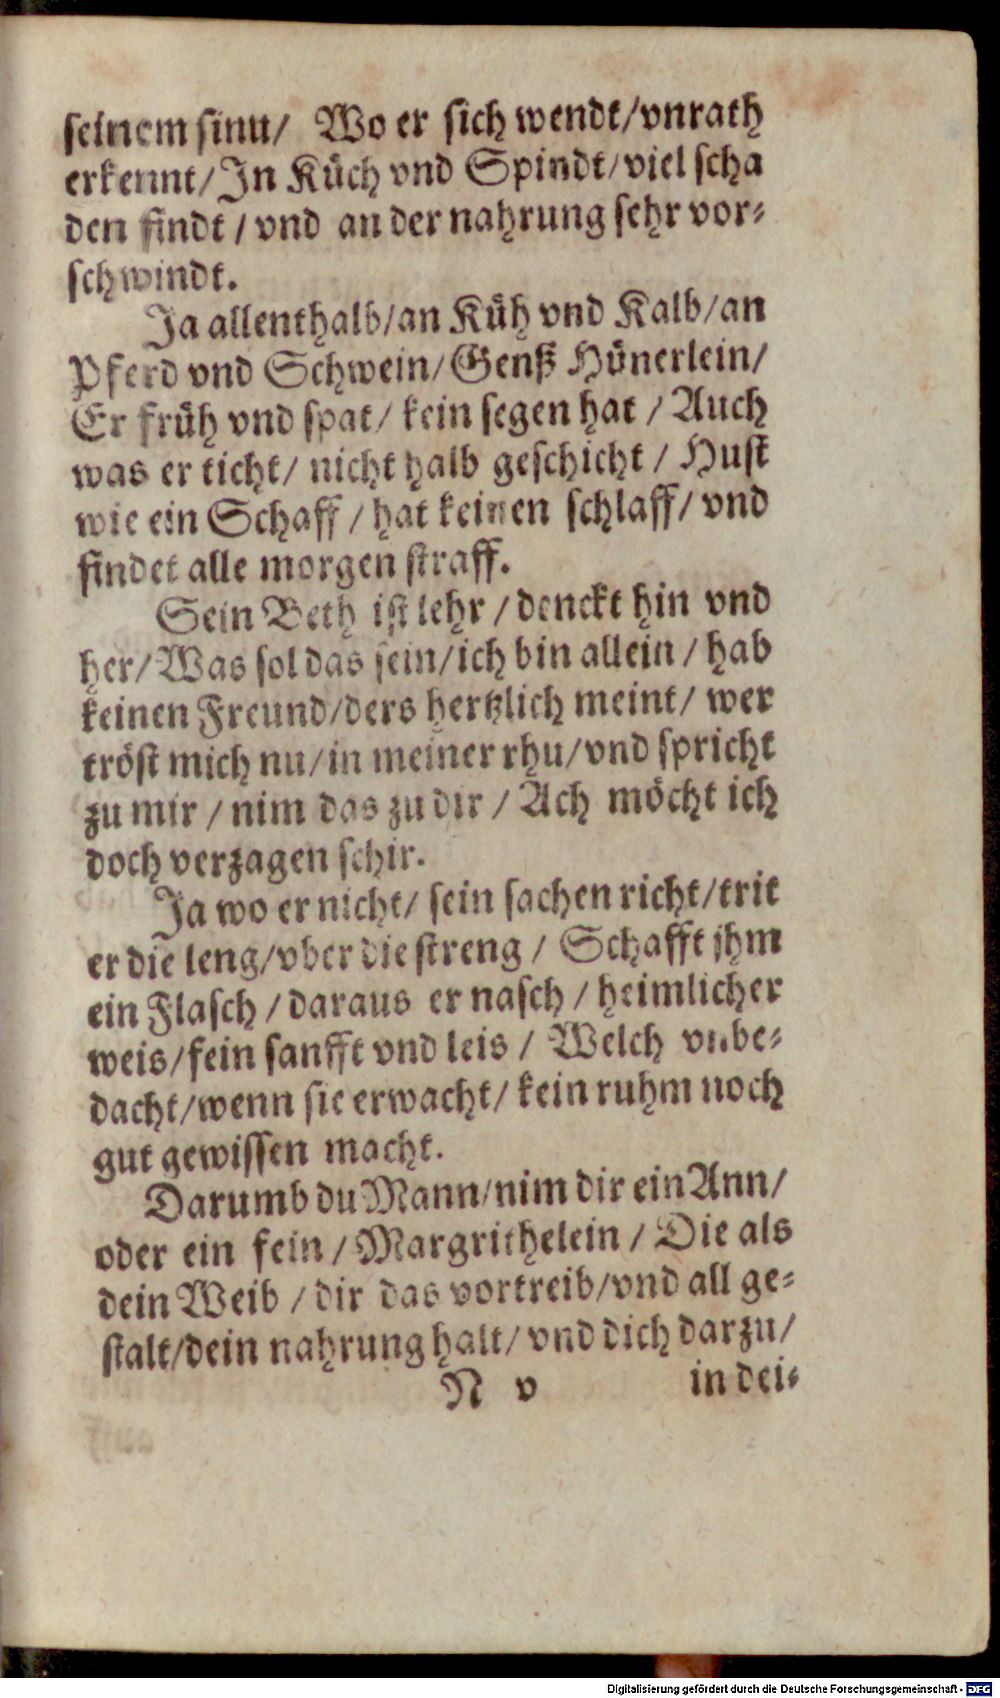 seinem sinn/ Wo er sich wendt/vnrath
erkennt/In Küch vnd Spindt/viel scha
den findt/ vnd an der nahrung sehr vor-
schwindt.
Ja allenthalb/an Küh vnd Kalb/an
Pferd vnd Schwein/Genß Hünerlein/
Er früh vnd spat/ kein segen hat / Auch
was er ticht/ nicht halb geschicht / Hust
wie ein Schaff / hat keinen schlaff/ vnd
findet alle morgen straff.
Sein Beth ist lehr / denckt hin vnd
her/Was sol das sein/ich bin allein / hab
keinen Freund/ders hertzlich meint/ wer
tröst mich nu/in meiner rhu/vnd spricht
zu mir / nim das zu dir / Ach möcht ich
doch verzagen schir.
Ja wo er nicht/ sein sachen richt/trit
er die leng/vber die streng / Schafft jhm
ein Flasch / daraus er nasch / heimlicher
weis/fein sanfft vnd leis / Welch vnbe-
dacht/wenn sie erwacht/ kein ruhm noch
gut gewissen macht.
Darumb du Mann/nim dir ein Ann/
oder ein fein / Margrithelein / Die als
dein Weib / dir das vortreib/vnd all ge-
stalt/dein nahrung halt/ vnd dich darzu/
N v in dei-
Digitalisierung gefördert durch die Deutsche Forschungsgemeinschaft - DFG